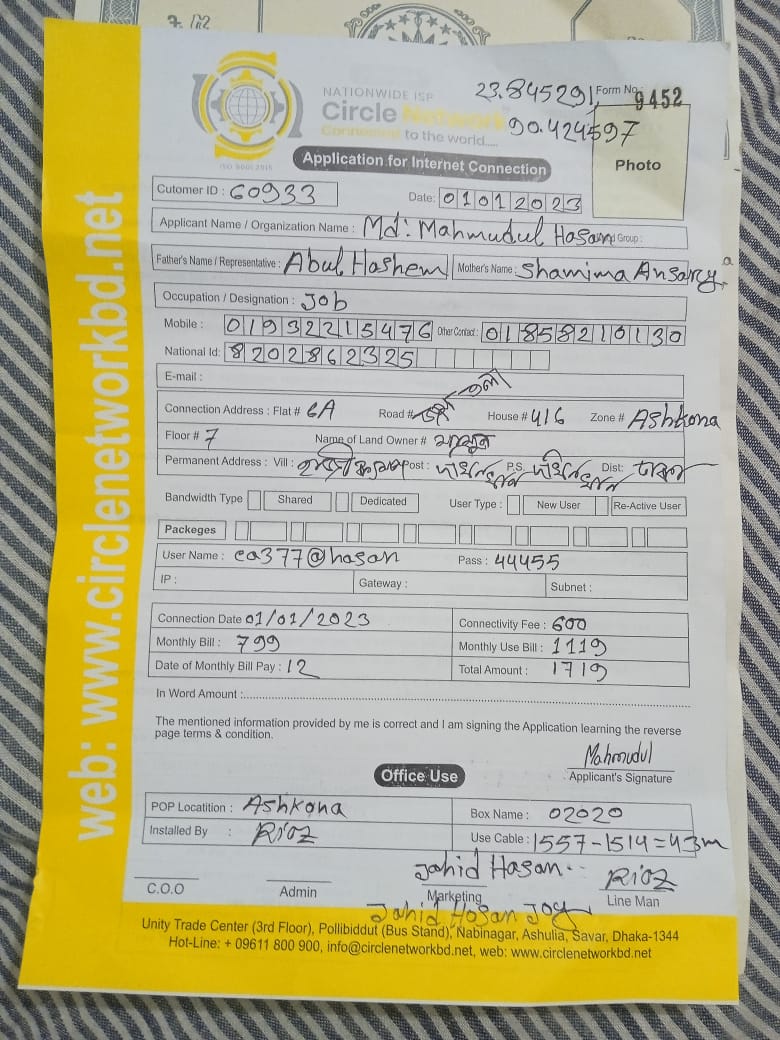 NATIONWIDE ISP
Circle Network
Connected to the world.....
ISO 9001:2015
23.845291,
90.424597
Form No: 9452
Photo
Application for Internet Connection
Cutomer ID : 60933
Date: 01012023
Applicant Name / Organization Name : Md: Mahmudul Hasan Group :
Father's Name / Representative : Abul Hashem Mother's Name : Shamima Ansary
Occupation / Designation : Job
Mobile : 01932215476 Other Contact : 01858210130
National Id: 8202862325
E-mail :
Connection Address : Flat # 6A Road # House # 416 Zone # Ashkona
Floor # 7 Name of Land Owner #
Permanent Address : Vill : Post : P.S. Dist: ঢাকা
Bandwidth Type Shared Dedicated User Type : New User Re-Active User
Packeges
User Name : ca377@hasan Pass : 44455
IP : Gateway : Subnet :
Connection Date 01/01/2023 Connectivity Fee : 600
Monthly Bill : 799 Monthly Use Bill : 1119
Date of Monthly Bill Pay : 12 Total Amount : 1719
In Word Amount :
The mentioned information provided by me is correct and I am signing the Application learning the reverse
page terms & condition.
Mahmudul
Applicant's Signature
Office Use
POP Locatition : Ashkona Box Name : 02020
Installed By : Rioz Use Cable : 1557-1514=43m
Jahid Hasan Rioz
C.O.O Admin Marketing Line Man
Jahid Hasan Joy
Unity Trade Center (3rd Floor), Pollibiddut (Bus Stand), Nabinagar, Ashulia, Savar, Dhaka-1344
Hot-Line: + 09611 800 900, info@circlenetworkbd.net, web: www.circlenetworkbd.net
web: www.circlenetworkbd.net